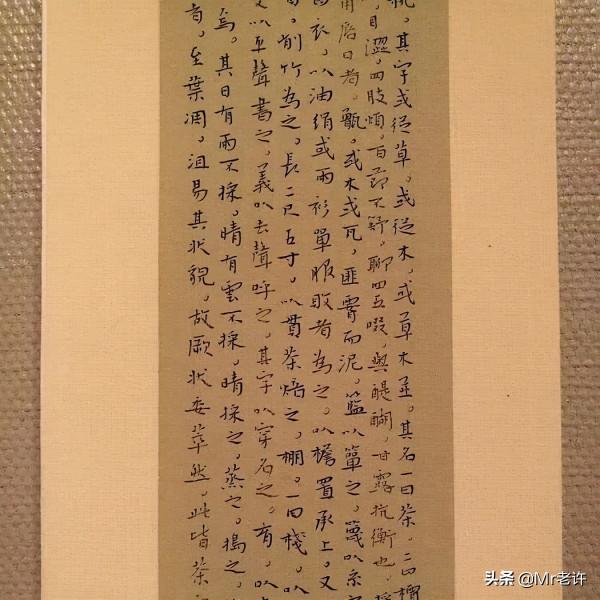 其字或從草。或從木。或草木並。其名一曰茶。二曰檟
目澀。四肢煩。百節不舒。聊四五啜。與醍醐。甘露抗衡也。採
唇口者。甑。或木或瓦。匪霄而泥。籃以簞之。篾以系
衣。以油絹或雨衫單服敗者為之。以檐置承上。又
曰。削竹為之。長二尺五寸。以貫茶焙之。棚。一曰棧。以
文以平聲書之。義以去聲呼之。其字以穿名之。育。以
焉。其日有雨不採。晴有雲不採。晴採之。蒸之。搗之。
者。至葉凋。沮易其狀貌。故厥狀委萃然。此皆茶
头条 @Mr老许